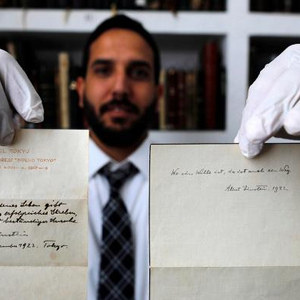 TOKYO
"IMPEHO TOKYO"
Leben gibt
erfolgreiches Streben,
beständiger Unruhe
1922. Tokyo.
Wo ein Wille ist, da ist auch ein Weg.
Albert Einstein. 1922.